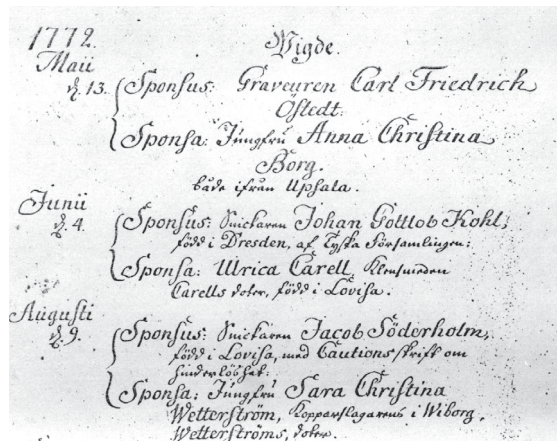 1772.
Vigde.
Maii
d. 13.
Sponsus: Graveuren Carl Friedrich
Östedt.
Sponsa: Jungfru Anna Christina
Borg.
både ifrån Uphala.
Junii
d. 4.
Sponsus: Snickaren Johan Gottlob Kohl,
född i Dresden, af Tyska Församlingen:
Sponsa: Ulrica Carell, Klensmeden
Carells doter, född i Lovisa.
Augusti
d. 9.
Sponsus: Snickaren Jacob Söderholm,
född i Lovisa, med Cautions skrift om
hinderlöshet:
Sponsa: Jungfru Sara Christina
Wetterström, Kopparslagarens i Wiborg,
Wetterströms, doter.